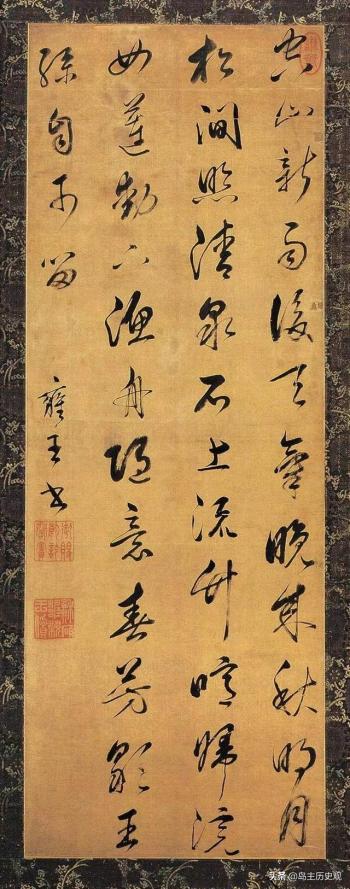 空山新雨後天氣晚来秋明月
松澗照清泉石上流竹喧歸浣
女蓮動下漁舟随意春芳歇王
孫自可留
雍王書
头条 @岛主历史观